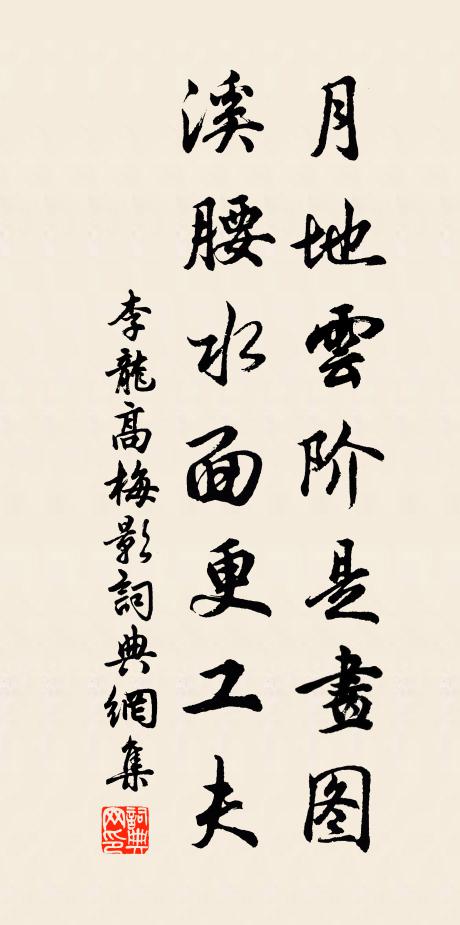 月地雲阶是畫图
溪腰水面更工夫
李龍高梅影詞典網集
詞典网印